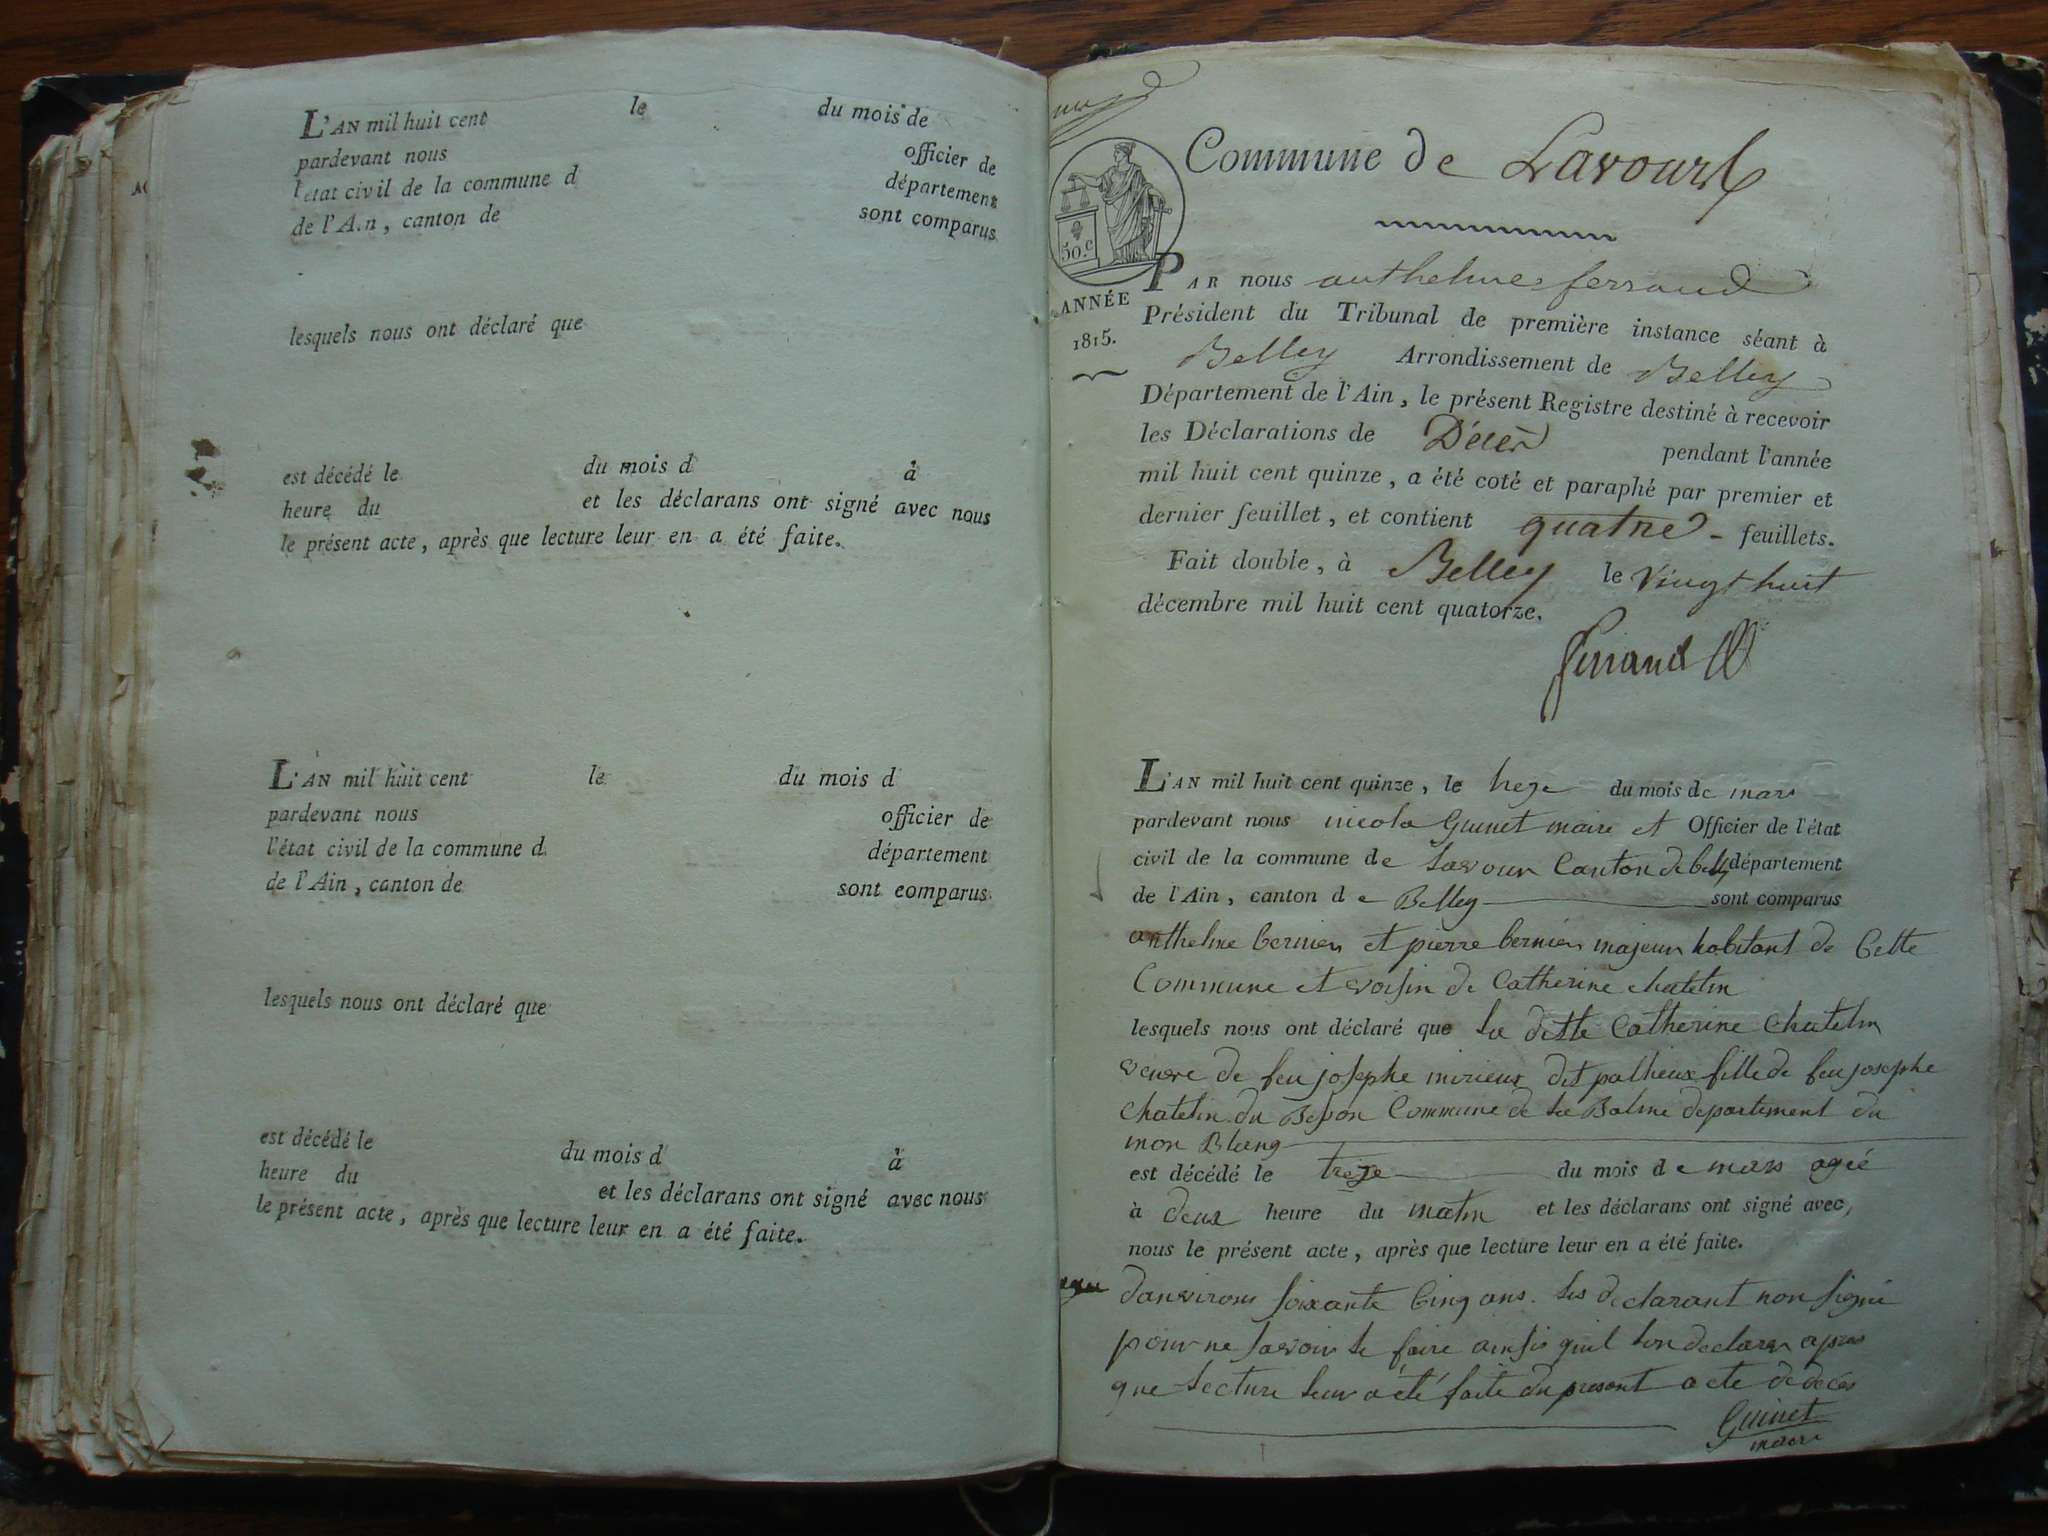 L'AN mil huit cent le du mois de
pardevant nous officier de
l'état civil de la commune d département
de l'Ain, canton de sont comparus
lesquels nous ont déclaré que
est décédé le du mois d à
heure du et les déclarans ont signé avec nous
le présent acte, après que lecture leur en a été faite.
L'AN mil huit cent le du mois d
pardevant nous officier de
l'état civil de la commune d département
de l'Ain, canton de sont comparus
lesquels nous ont déclaré que
est décédé le du mois d à
heure du et les déclarans ont signé avec nous
le présent acte, après que lecture leur en a été faite.
Commune de Lavours
50.c
ANNÉE
1815.
PAR nous anthelme ferrand
Président du Tribunal de première instance séant à
Belley Arrondissement de Belley
Département de l'Ain, le présent Registre destiné à recevoir
les Déclarations de Décès pendant l'année
mil huit cent quinze, a été coté et paraphé par premier et
dernier feuillet, et contient quatre - feuillets.
Fait double, à Belley le vingt huit
décembre mil huit cent quatorze.
Ferrand
L'AN mil huit cent quinze, le treze du mois de mars
pardevant nous nicola Guinet maire et Officier de l'état
civil de la commune de Lavour Canton de belley département
de l'Ain, canton de Belley sont comparus
anthelme bernier et pierre bernier majeur habitant de Cette
Commune et voisin de Catherine chatelin
lesquels nous ont déclaré que la ditte Catherine Chatelin
veuve de feu josephe mirieux dit palheux fille de feu josephe
chatelin du Commune de La Balme departement du
mon Blang
est décédé le treze du mois de mars agée
à deux heure du matin et les déclarans ont signé avec,
nous le présent acte, après que lecture leur en a été faite.
danvirons soixante Cinq ans. Les declarant non signé
pour ne savoir le faire ainsis quil lon declarer apres
que Lecture leur a été faite du present acte de deces
Guinet
maire